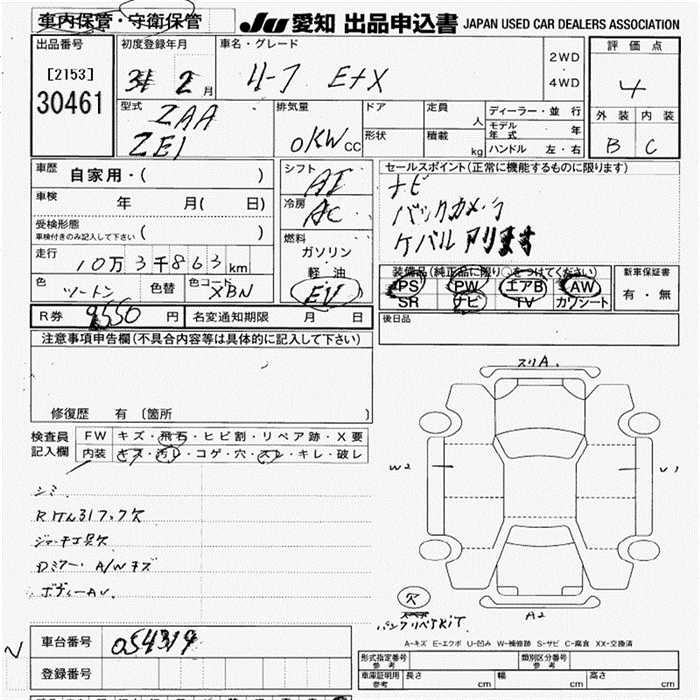 車内保管・守衛保管
JU 愛知 出品申込書 JAPAN USED CAR DEALERS ASSOCIATION
出品番号
[2153]
30461
初度登録年月
2 月
車名・グレード
リーフ E+X
2WD
・
4WD
評価点
4
外装 内装
B C
型式
ZAA
ZE1
排気量
0KW cc
ドア
形状
定員
人
積載
kg
ディーラー・並行
モデル年式 年
ハンドル 左・右
車歴
自家用・( )
車検
年 月( 日)
受検形態
車検付きのみ記入して下さい ( )
走行
10万3千863km
色
ツートン
色替
色コード
XBN
シフト
AT
冷房
AC
燃料
ガソリン
軽油
EV
セールスポイント(正常に機能するものに限ります)
ナビ
バックカメラ
ケーブルアリ
装備品(純正品に限り○をつけてください)
PS PW エアB AW
SR ナビ TV カワシート
新車保証書
有・無
R券 9550 円
名変通知期限 月 日
後日品
注意事項申告欄(不具合内容等は具体的に記入して下さい)
修復歴 有 〔箇所 〕
検査員
記入欄
FW キズ・飛石・ヒビ割・リペア跡・X要
内装 キズ・汚レ・コゲ・穴・スレ・キレ・破レ
シミ
Rけん引フック欠
ジャッキ工具欠
Dミラー A/Wキズ
ボディーAU.
スリA.
W2
U1
A2
パンクリペアKIT
A-キズ E-エクボ U-凹み W-補修跡 S-サビ C-腐食 XX-交換済
車台番号 054319
登録番号
形式指定番号
参考
類別区分番号
参考
車庫証明用
参考
長さ cm
幅 cm
高さ cm